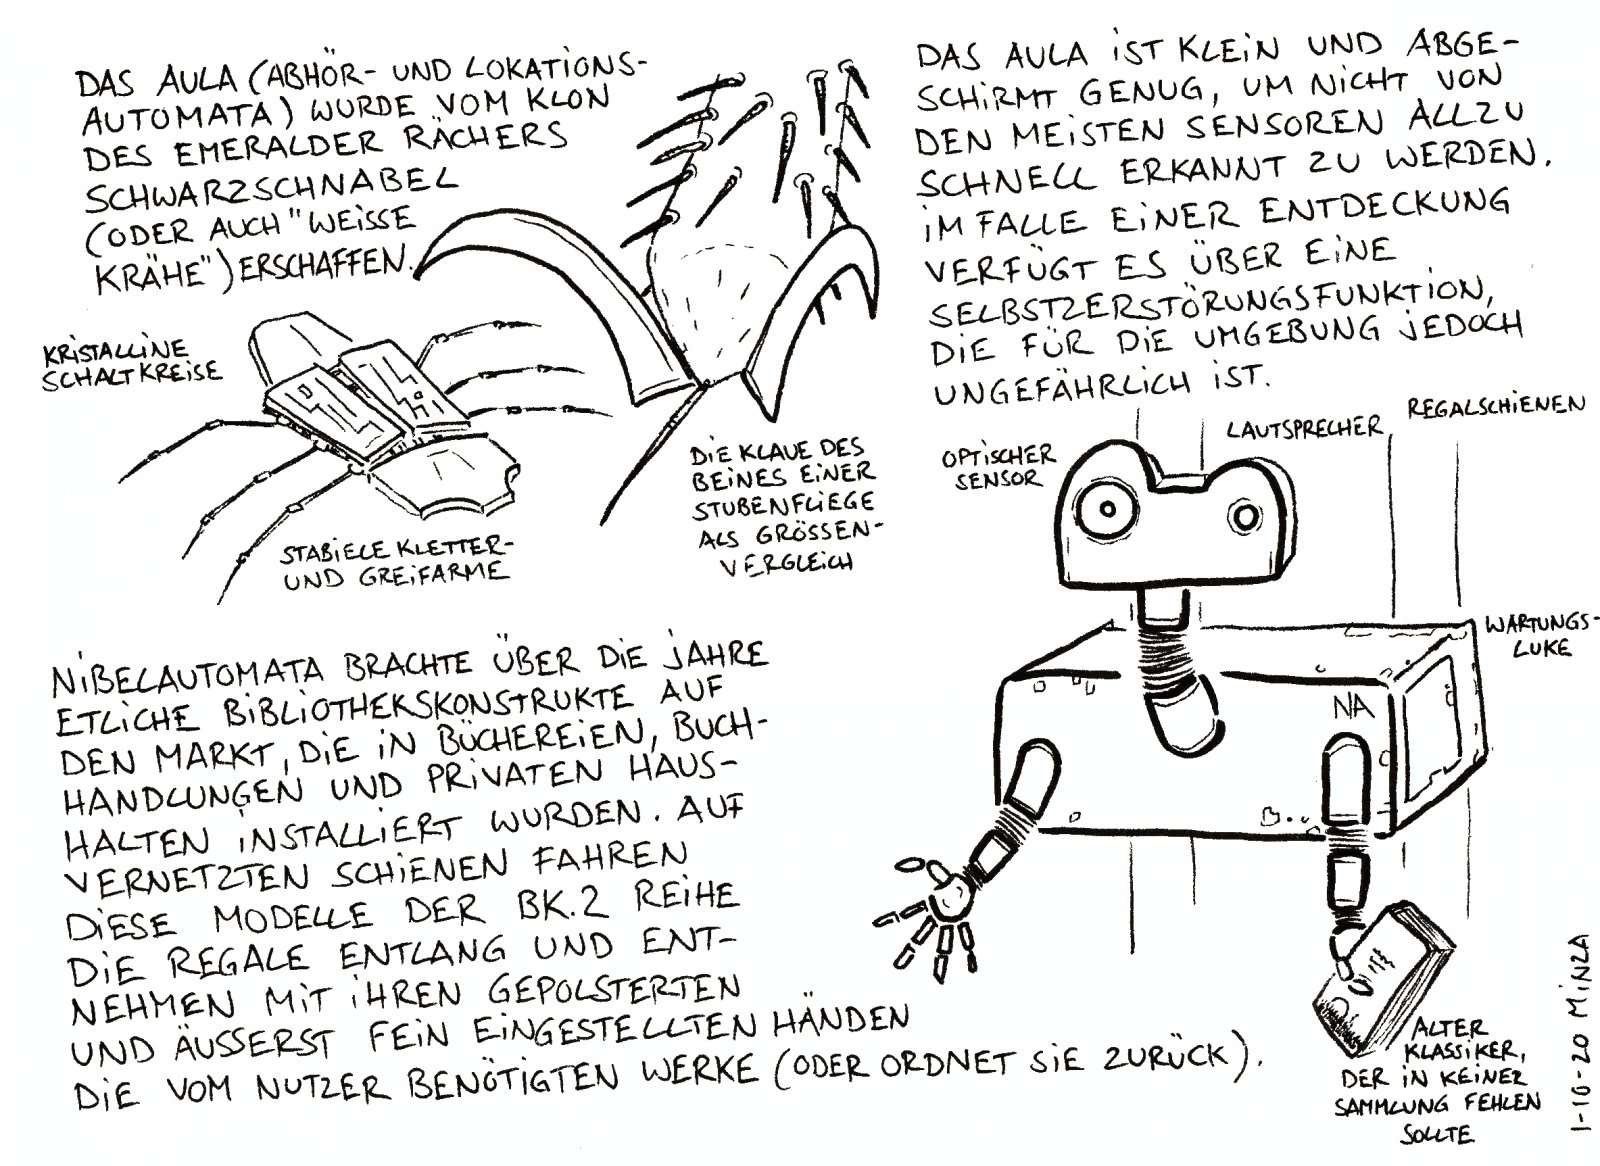 DAS AULA (ABHÖR- UND LOKATIONS-
AUTOMATA) WURDE VOM KLON
DES EMERALDER RÄCHERS
SCHWARZSCHNABEL
(ODER AUCH "WEISSE
KRÄHE") ERSCHAFFEN.
KRISTALLINE
SCHALTKREISE
STABIELE KLETTER-
UND GREIFARME
DIE KLAUE DES
BEINES EINER
STUBENFLIEGE
ALS GRÖSSEN-
VERGLEICH
DAS AULA IST KLEIN UND ABGE-
SCHIRMT GENUG, UM NICHT VON
DEN MEISTEN SENSOREN ALLZU
SCHNELL ERKANNT ZU WERDEN.
IM FALLE EINER ENTDECKUNG
VERFÜGT ES ÜBER EINE
SELBSTZERSTÖRUNGSFUNKTION,
DIE FÜR DIE UMGEBUNG JEDOCH
UNGEFÄHRLICH IST.
OPTISCHER
SENSOR
LAUTSPRECHER
REGALSCHIENEN
WARTUNGS-
LUKE
NA
NIBELAUTOMATA BRACHTE ÜBER DIE JAHRE
ETLICHE BIBLIOTHEKSKONSTRUKTE AUF
DEN MARKT, DIE IN BÜCHEREIEN, BUCH-
HANDLUNGEN UND PRIVATEN HAUS-
HALTEN INSTALLIERT WURDEN. AUF
VERNETZTEN SCHIENEN FAHREN
DIESE MODELLE DER BK.2 REIHE
DIE REGALE ENTLANG UND ENT-
NEHMEN MIT IHREN GEPOLSTERTEN
UND ÄUSSERST FEIN EINGESTELLTEN HÄNDEN
DIE VOM NUTZER BENÖTIGTEN WERKE (ODER ORDNET SIE ZURÜCK).
ALTER
KLASSIKER,
DER IN KEINER
SAMMLUNG FEHLEN
SOLLTE
1-10-20 MINZA